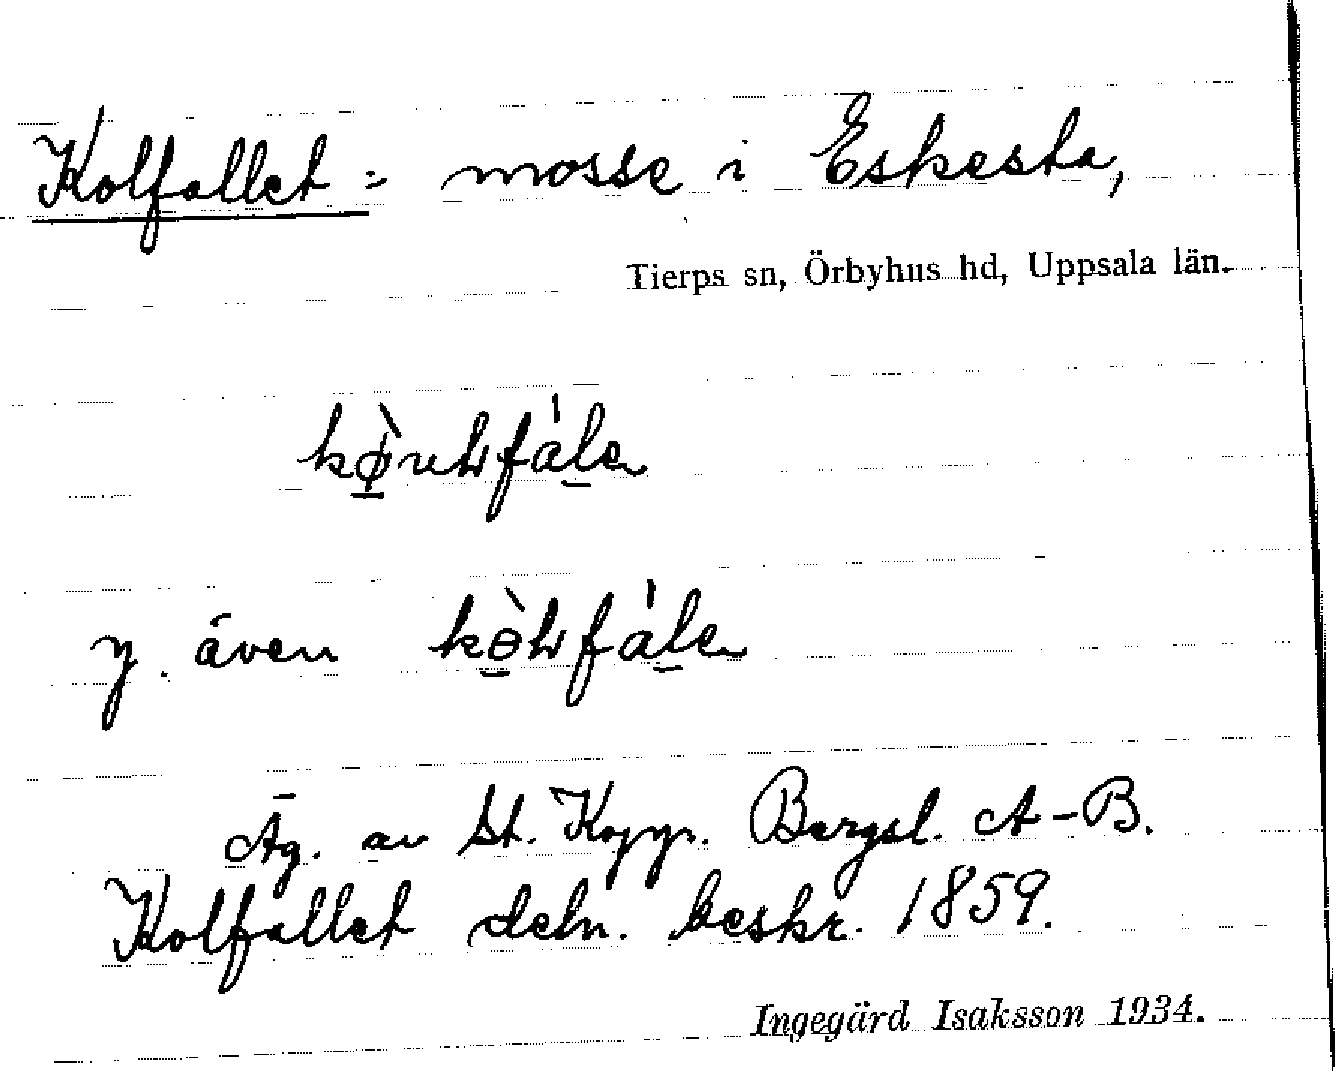 Kolfallet = mosse i Eskesta,
Tierps sn, Örbyhus hd, Uppsala län.
även
Äg. av St. Kopp. Bergsl. A-B.
Kolfallet deln. beskr. 1859.
Ingegärd Isaksson 1934.